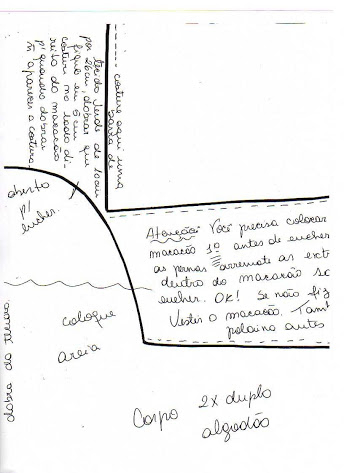 costure aqui uma
barra de
tecido verde de 10cm
por 26cm, dobrar que
fique em 5cm
costure no lado di-
reito do macacão
p/ quando dobrar
ñ aparecer a costura
aberto
p/
encher.
Atenção: Você precisa colocar
macacão 1º antes de encher
as pernas arremate as ext
dentro do macacão so
encher. OK! Se não fiz
Vestir o macacão. Tam
polaina antes
coloque
areia
dobra do tecido
Corpo 2x duplo
algodão